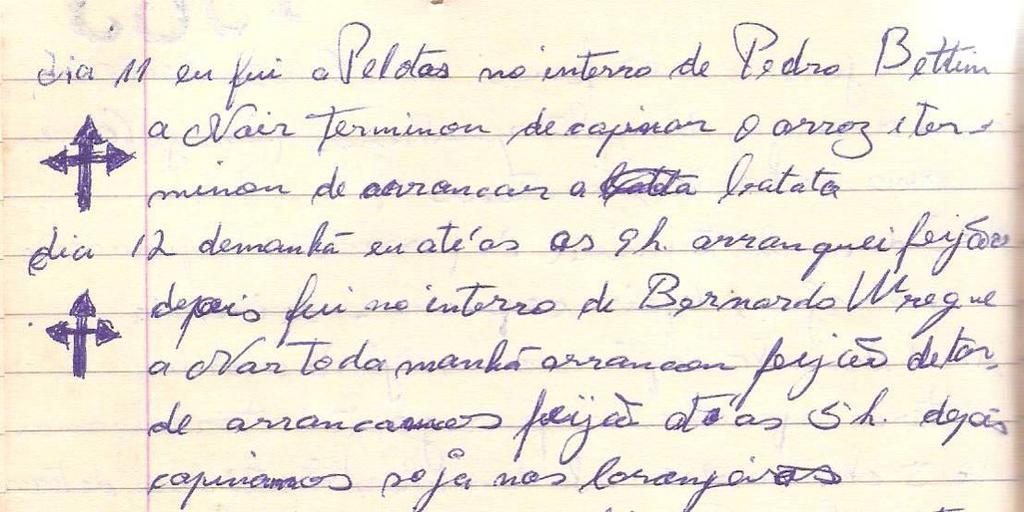 dia 11 eu fui a Pelotas no interro de Pedro Bettim
a Nair terminou de capinar o arroz i ter-
minou de arrancar a batata
dia 12 demanhã eu até as 9h. arranquei feijão
depois fui no interro de Bernardo Wregue
a Nair toda manhã arrancou feijão detar-
de arrancamos feijão até as 5h. depois
capinamos soja nas laranjeiras